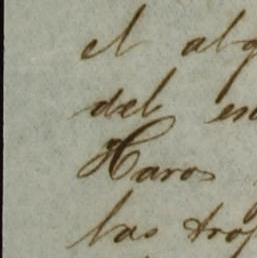 el alg
del es
Haros
las trop